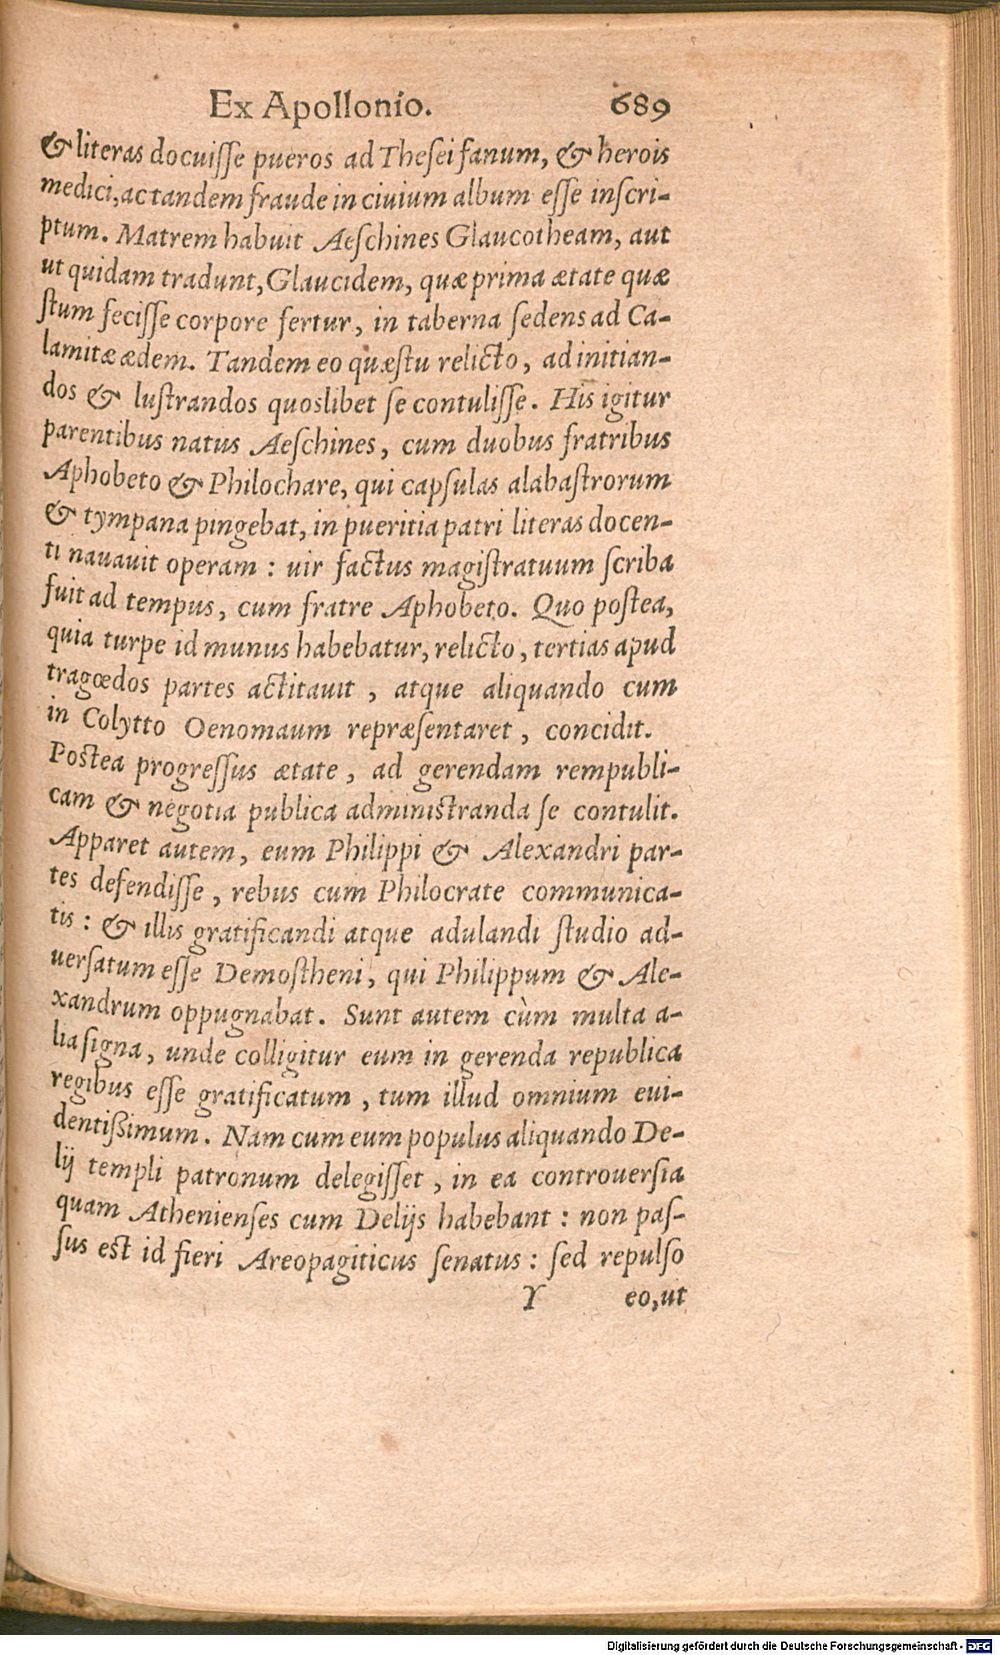 Ex Apollonio. 689
& literas docuiſſe pueros ad Theſei fanum, & herois
medici, ac tandem fraude in ciuium album eſſe inſcri-
ptum. Matrem habuit Aeſchines Glaucotheam, aut
ut quidam tradunt, Glaucidem, quæ prima ætate quæ
ſtum feciſſe corpore fertur, in taberna ſedens ad Ca-
lamitæ ædem. Tandem eo quæſtu relicto, ad initian-
dos & luſtrandos quoslibet ſe contuliſſe. His igitur
parentibus natus Aeſchines, cum duobus fratribus
Aphobeto & Philochare, qui capſulas alabaſtrorum
& tympana pingebat, in pueritia patri literas docen-
ti nauauit operam : uir factus magiſtratuum ſcriba
fuit ad tempus, cum fratre Aphobeto. Quo poſtea,
quia turpe id munus habebatur, relicto, tertias apud
tragœdos partes actitauit, atque aliquando cum
in Colytto Oenomaum repræſentaret, concidit.
Poſtea progreſſus ætate, ad gerendam rempubli-
cam & negotia publica adminiſtranda ſe contulit.
Apparet autem, eum Philippi & Alexandri par-
tes defendiſſe, rebus cum Philocrate communica-
tis : & illis gratificandi atque adulandi ſtudio ad-
uerſatum eſſe Demoſtheni, qui Philippum & Ale-
xandrum oppugnabat. Sunt autem cùm multa a-
lia ſigna, unde colligitur eum in gerenda republica
regibus eſſe gratificatum, tum illud omnium eui-
dentißimum. Nam cum eum populus aliquando De-
lij templi patronum delegiſſet, in ea controuerſia
quam Athenienſes cum Delijs habebant : non paſ-
ſus eſt id fieri Areopagiticus ſenatus : ſed repulſo
Y eo, ut
Digitalisierung gefördert durch die Deutsche Forschungsgemeinschaft - DFG